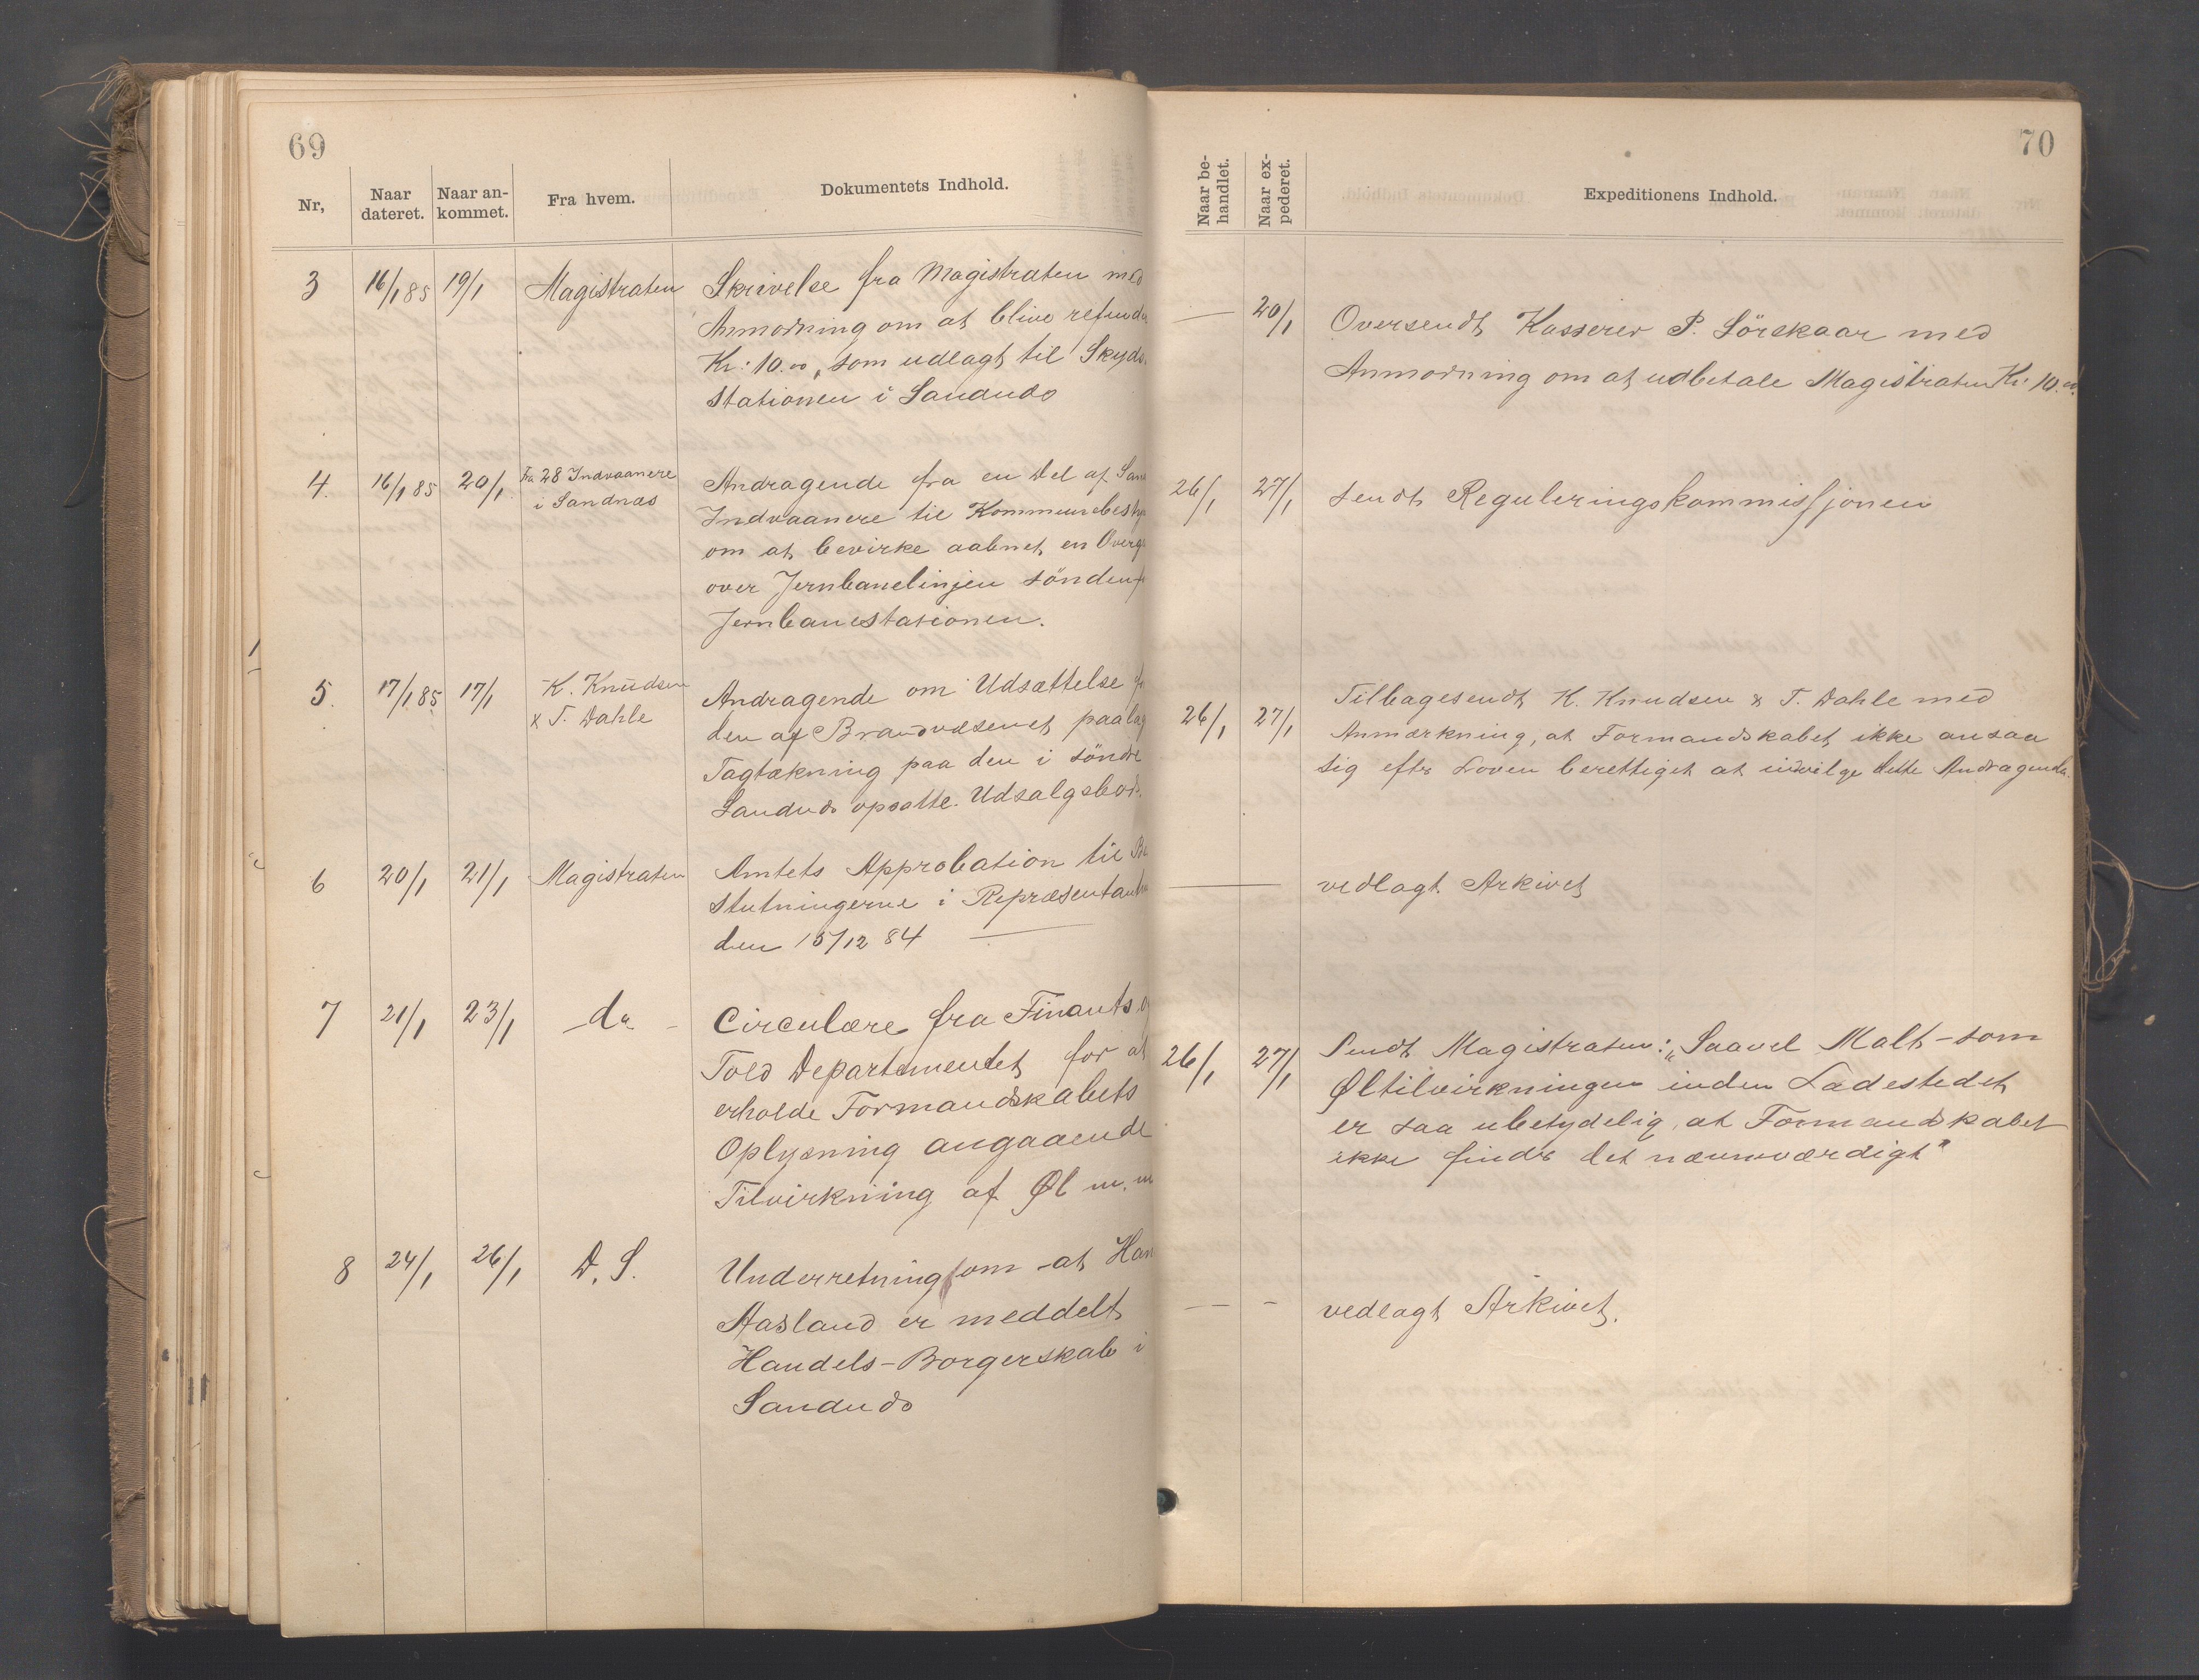 69
Nr,
Naar dateret.
Naar an-
kommet.
Fra hvem.
Dokumentets Indhold.
3 16/1 85 19/1 Magistraten
Skrivelse fra Magistraten med
Anmodning om at blive refunde
Kr: 10.00, som udlagt til Skyds
Stationen i Sandnds
4. 16/1 85 20/1. Fra 28 Indvaanere
i Sandnæs
Andragende fra en Del af San
Indvaanere til Kommunebesty
om at bevirke aabnet en Overg
over Jernbanelinjen sönden f
Jernbanestationen.
5. 17/1 85 17/1 K. Knudsen
& T. Dahle
Andragende om Udsættelse f
den af Brandvæsenet paalag
Tagtækning paa den i söndre
Sandnds opsatte Udsalgsbod.
6 20/1 21/1 Magistraten
Amtets Approbation til Be
slutningerne i Repræsentant
den 15/12 84
7 21/1 23/1 do
Circulære fra Finants o
Told Departementet for at
erholde Formandskabets
Oplysning angaaende
Tilvirkning af Øl m. m
8 24/1 26/1 D. S.
Underretning om at Han
Aasland er meddelt
Handels-Borgerskab i
Sandnds
70
Naar be-
handlet.
Naar ex-
pederet.
Expeditionens Indhold.
— 20/1
Oversendt Kasserer P. Sörskaar med
Anmodning om at udbetale Magistraten Kr. 10.00.
26/1 27/1 sendt Reguleringskommissjonen
26/1 27/1
Tilbagesendt K. Knudsen & T. Dahle med
Anmærkning, at Formandskabet ikke ansaa
sig efter Loven berettiget at indvilge dette Andragende.
— vedlagt Arkivet
26/1 27/1
Sendt Magistraten: „Saavel Malt-som
Øltilvirkningen inden Ladestedet
er saa ubetydelig, at Formandskabet
ikke finder det nævneværdigt"
— - vedlagt Arkivet.